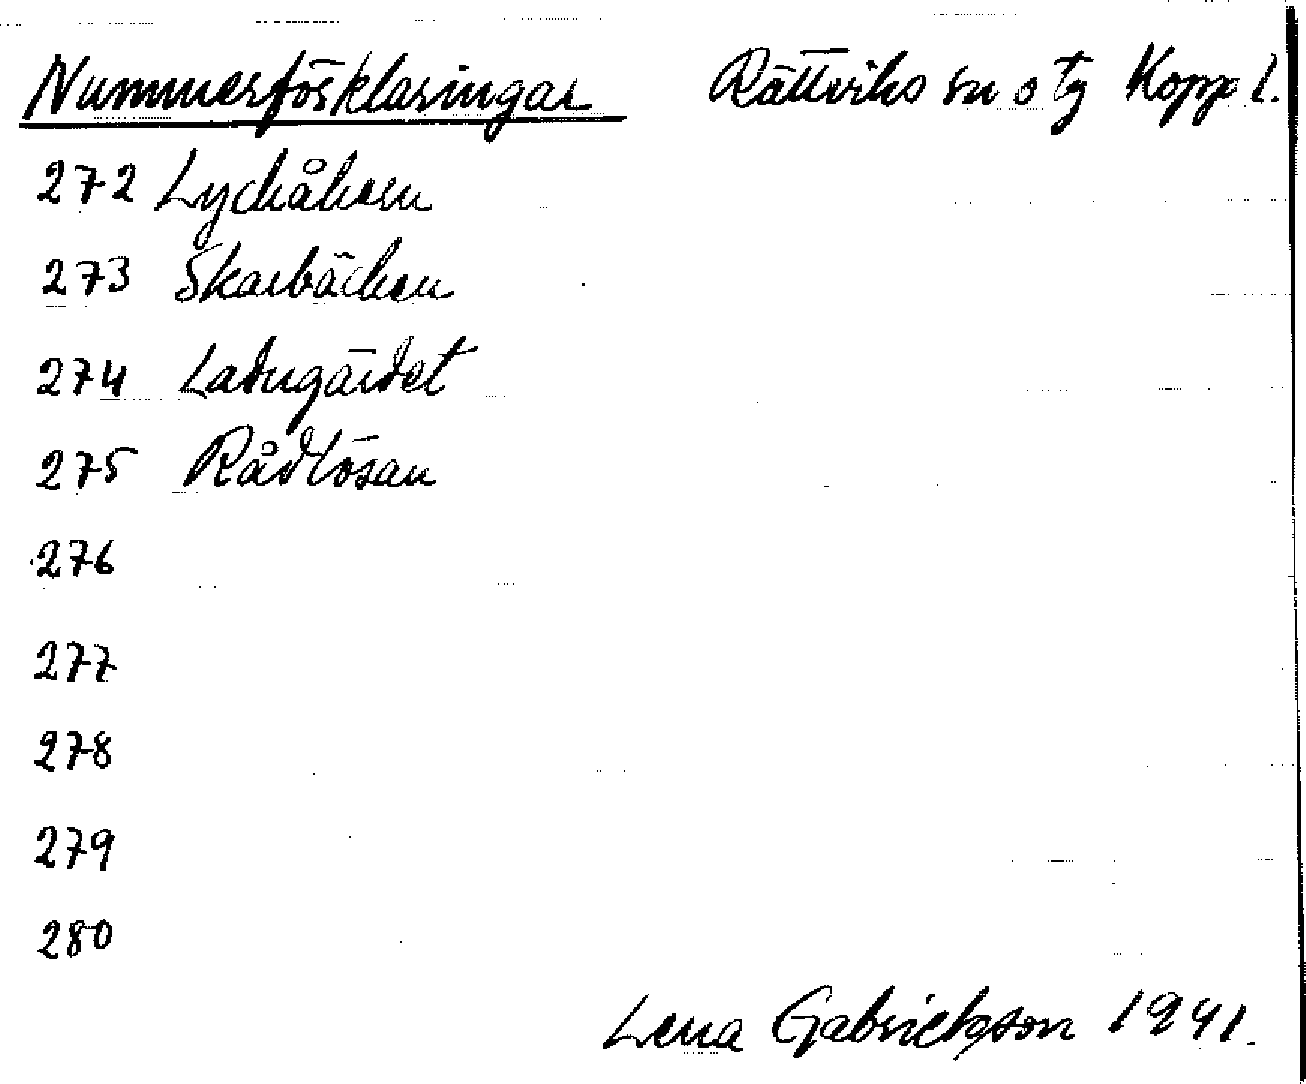 Nummerförklaringar Rättviks sn o tg Kopp l.
272 Lyckåkern
273 Skarbäcken
274 Ladugärdet
275 Rådlösan
276
277
278
279
280
Lena Gabrielsson 1941.